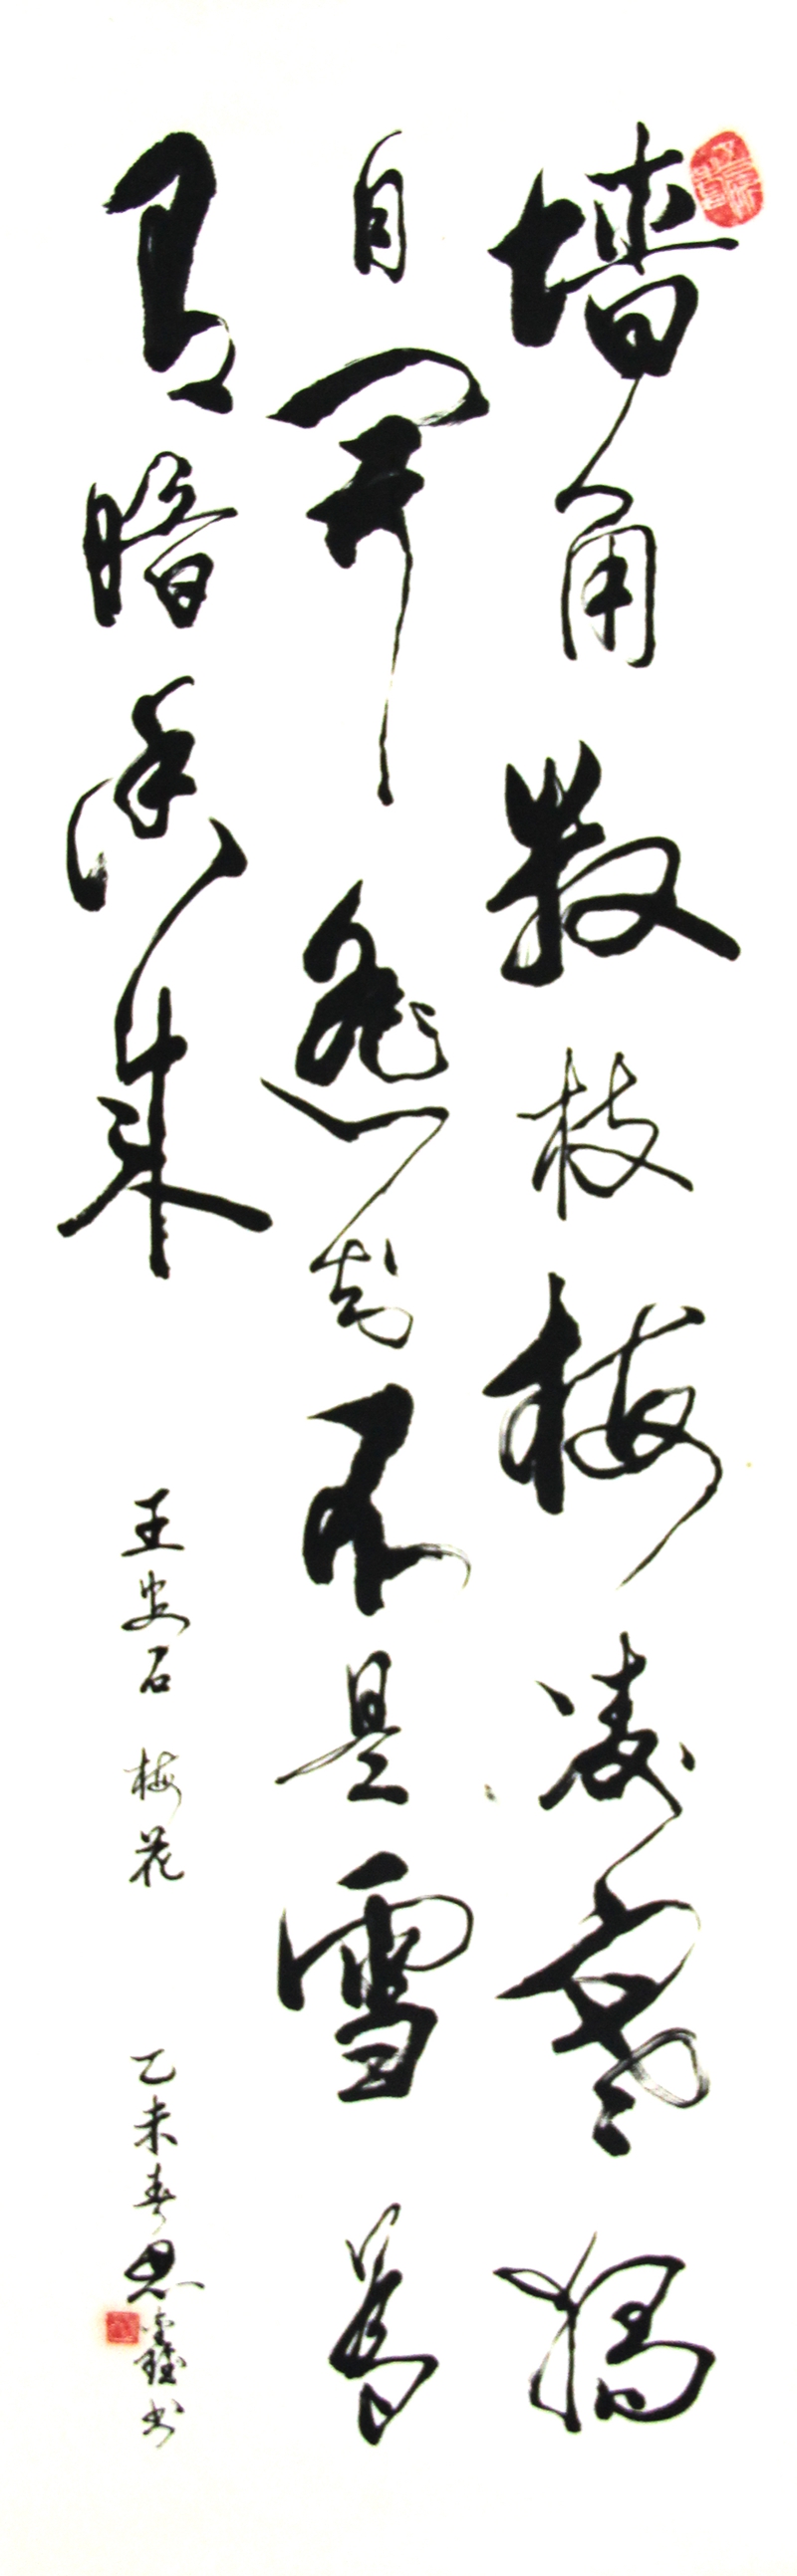 墙角数枝梅凌寒独
自开遥知不是雪为
有暗香来
王安石 梅花
乙未春思鑫书